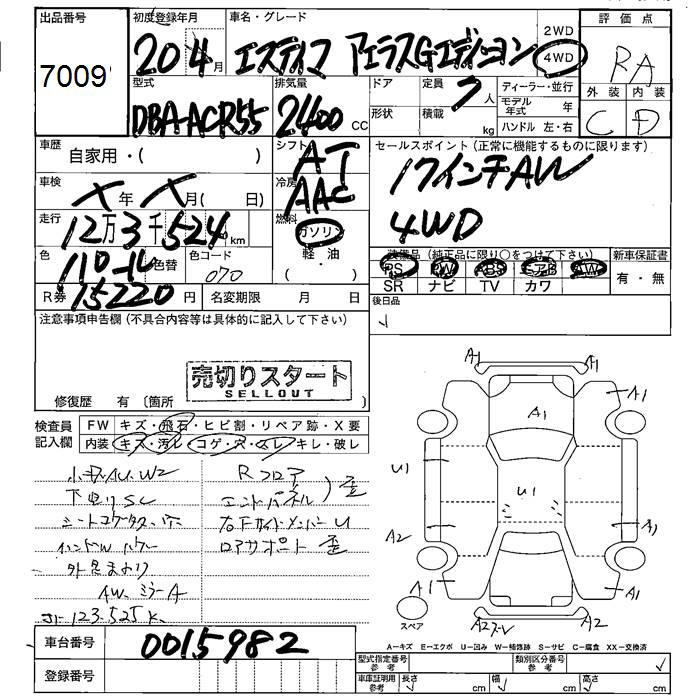 出品番号
7009
初度登録年月
20年4月
車名・グレード
エスティマ アエラスGエディション
2WD
4WD
評価点
RA
外装 内装
C D
型式
DBA-ACR55
排気量
2400 CC
ドア
定員
7人
形状
積載
kg
ディーラー・並行
モデル年式 年
ハンドル 左・右
車歴
自家用・( )
シフト
AT
セールスポイント(正常に機能するものに限ります)
17インチAW
4WD
車検
X年 X月( 日)
冷房
AAC
走行
12万3千524km
燃料
ガソリン
軽・油
( )
色
パール
色替
色コード
070
装備品(純正品に限り○をつけて下さい)
PS PW ABS エアB AW
SR ナビ TV カワ
新車保証書
有・無
R券 15220円
名変期限 月 日
後日品
注意事項申告欄(不具合内容等は具体的に記入して下さい)
売切りスタート
SELLOUT
修復歴 有〔箇所 〕
検査員記入欄
FW キズ・飛石・ヒビ割・リペア跡・X要
内装 キズ・汚レ・コゲ・穴・スレ・キレ・破レ
小キズAU.W2
下廻りSC
Rフロア
エンドパネル
歪
右下サイドメンバーU
ロアサポート 歪
AW、ミラーA
123.525K
A1
A1
A1
A1
U1
U1
A2
A1
A1
A1
A2
スペア
A-キズ E-エクボ U-凹み W-補修跡 S-サビ C-腐食 XX-交換済
車台番号
0015982
登録番号
型式指定番号
参考
類別区分番号
参考
車庫証明用
参考
長さ cm
幅 cm
高さ cm